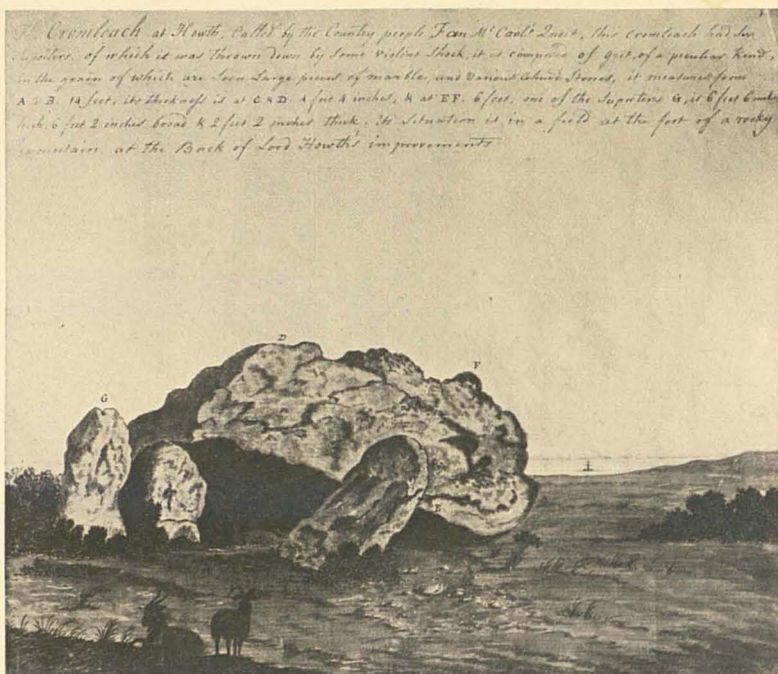 Cromleach at Howth, Called by the Country people Fan Mc Cool's Quoit, this Cromleach had Six
Suporters, of which it was thrown down by some Violent Shock, it is composed of grit, of a peculiar Kind,
in the grain of which are Seen Large pieces of marble, and Various Colour'd Stones, it measures from
A to B. 14 feet, its thickness is at C & D 4 feet 4 inches, & at EF. 6 feet, one of the Suporters G, is 6 feet 6 inches
high, 6 feet 2 inches broad & 2 feet 2 inches thick, its Situation is in a field at the foot of a rocky
mountain at the Back of Lord Howth's improvements
D
F
G